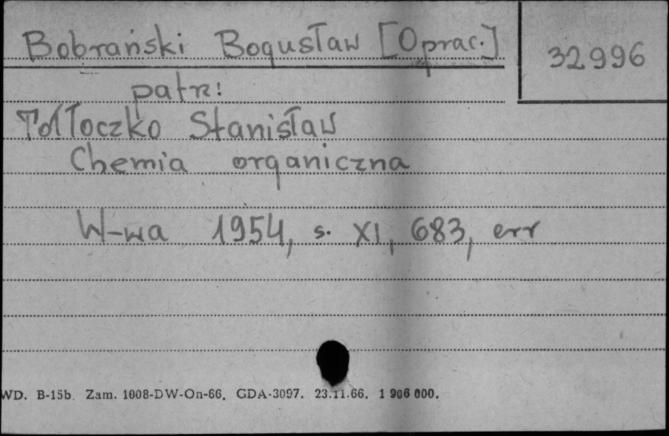 Bobrański Bogusław [Oprac.]
32996
patrz:
Tołłoczko Stanisław
Chemia organiczna
W-wa 1954, s. XI, 683, err
WD. B-15b. Zam. 1008-DW-On-66. GDA-3097. 23.11.66. 1 906 000.